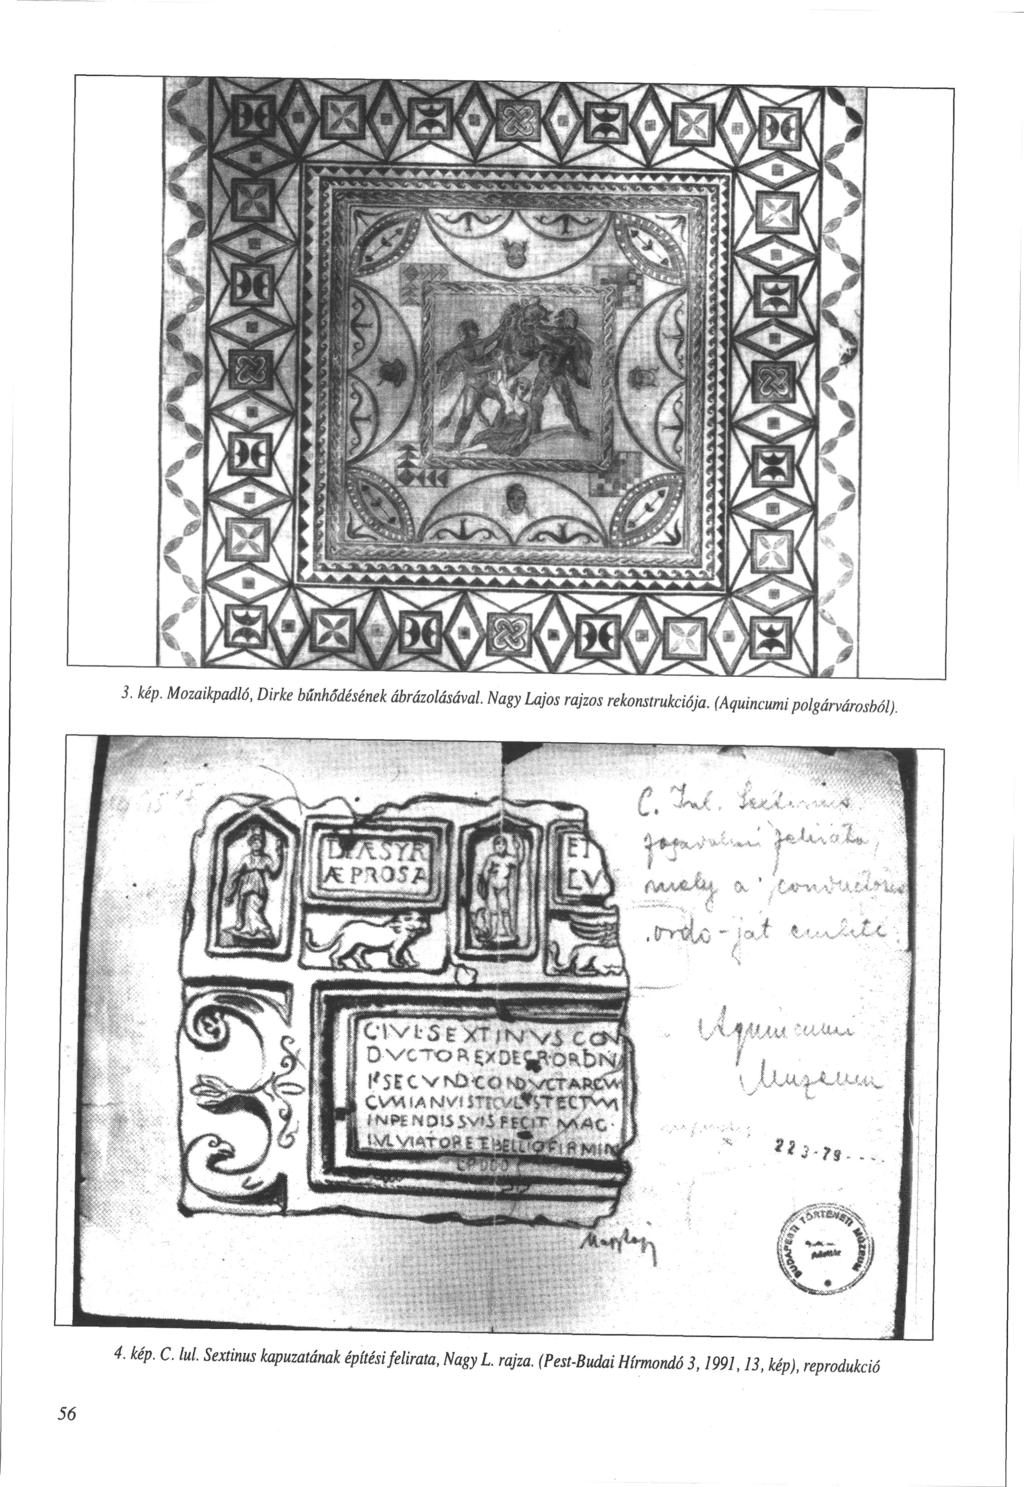 3. kép. Mozaikpadló, Dirke bűnhődésének ábrázolásával. Nagy Lajos rajzos rekonstrukciója. (Aquincumi polgárvárosból).
C. Iul. Sextinus
fogadalmi felirata,
mely a conductores
ordo-ját említi.
Aquincumi
Muzeum
223-79
DEÆSYR
ÆPROSA
ET
LV
C·IVL·SEXTINVS CON
DVCTOR EX DECR·ORDN
SECVND·CONDVCTARCV
INPENDIS SVIS FECIT MAG·
IVL VIATORE ET BELLIO FIRMIN
BUDAPESTI TÖRTÉNETI MÚZEUM
4. kép. C. Iul. Sextinus kapuzatának építési felirata, Nagy L. rajza. (Pest-Budai Hírmondó 3, 1991, 13, kép), reprodukció
56